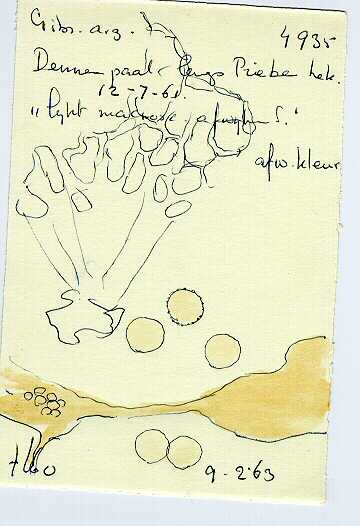 Gibs. arg.
4935
Dennen paal langs Priebe hek.
12-7-61.
"lijkt macrosc. afwijk f."
afw. kleur
760
9-2-63